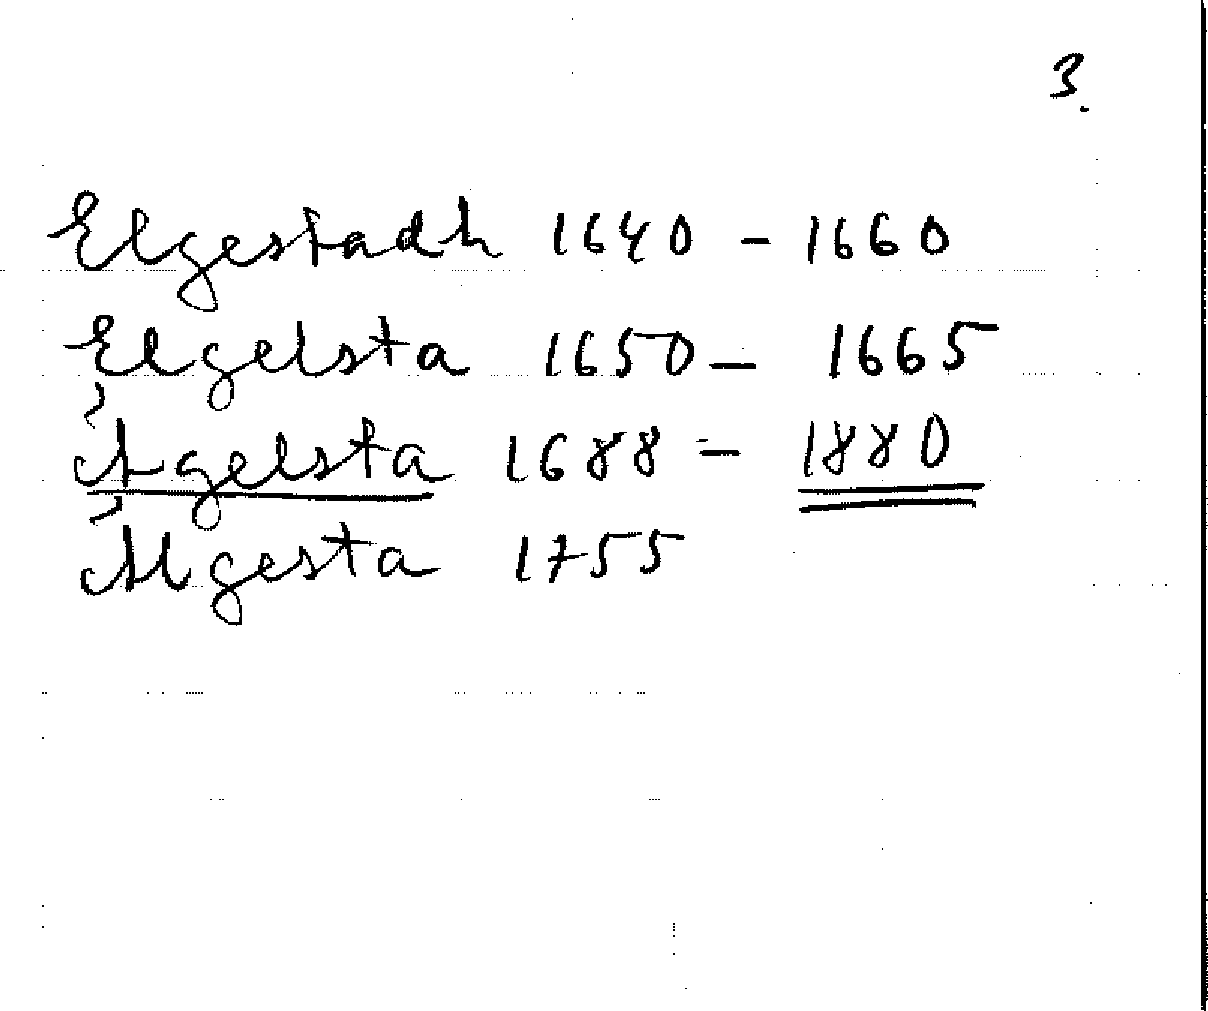 3.
Elgestadh 1640 - 1660
Elgelsta 1650 - 1665
Ägelsta 1688 - 1880
Älgesta 1755